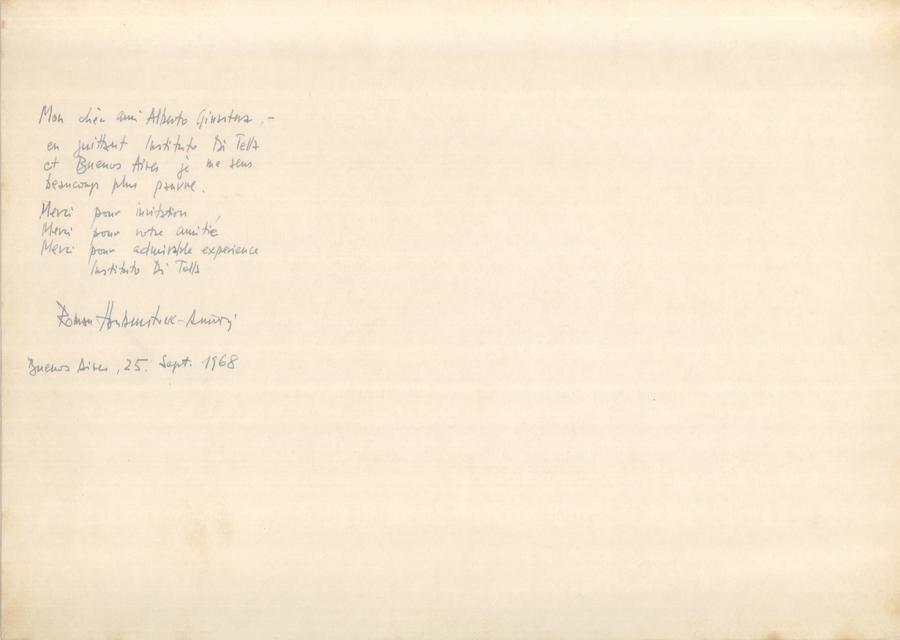 Mon chèr ami Alberto Ginastera, -
en quittant Instituto Di Tella
et Buenos Aires je me sens
beaucoup plus pauvre.
Merci pour invitation
Merci pour votre amitié
Merci pour admirable experience
Instituto Di Tella
Roman Haubenstock-Ramati
Buenos Aires, 25. Sept. 1968